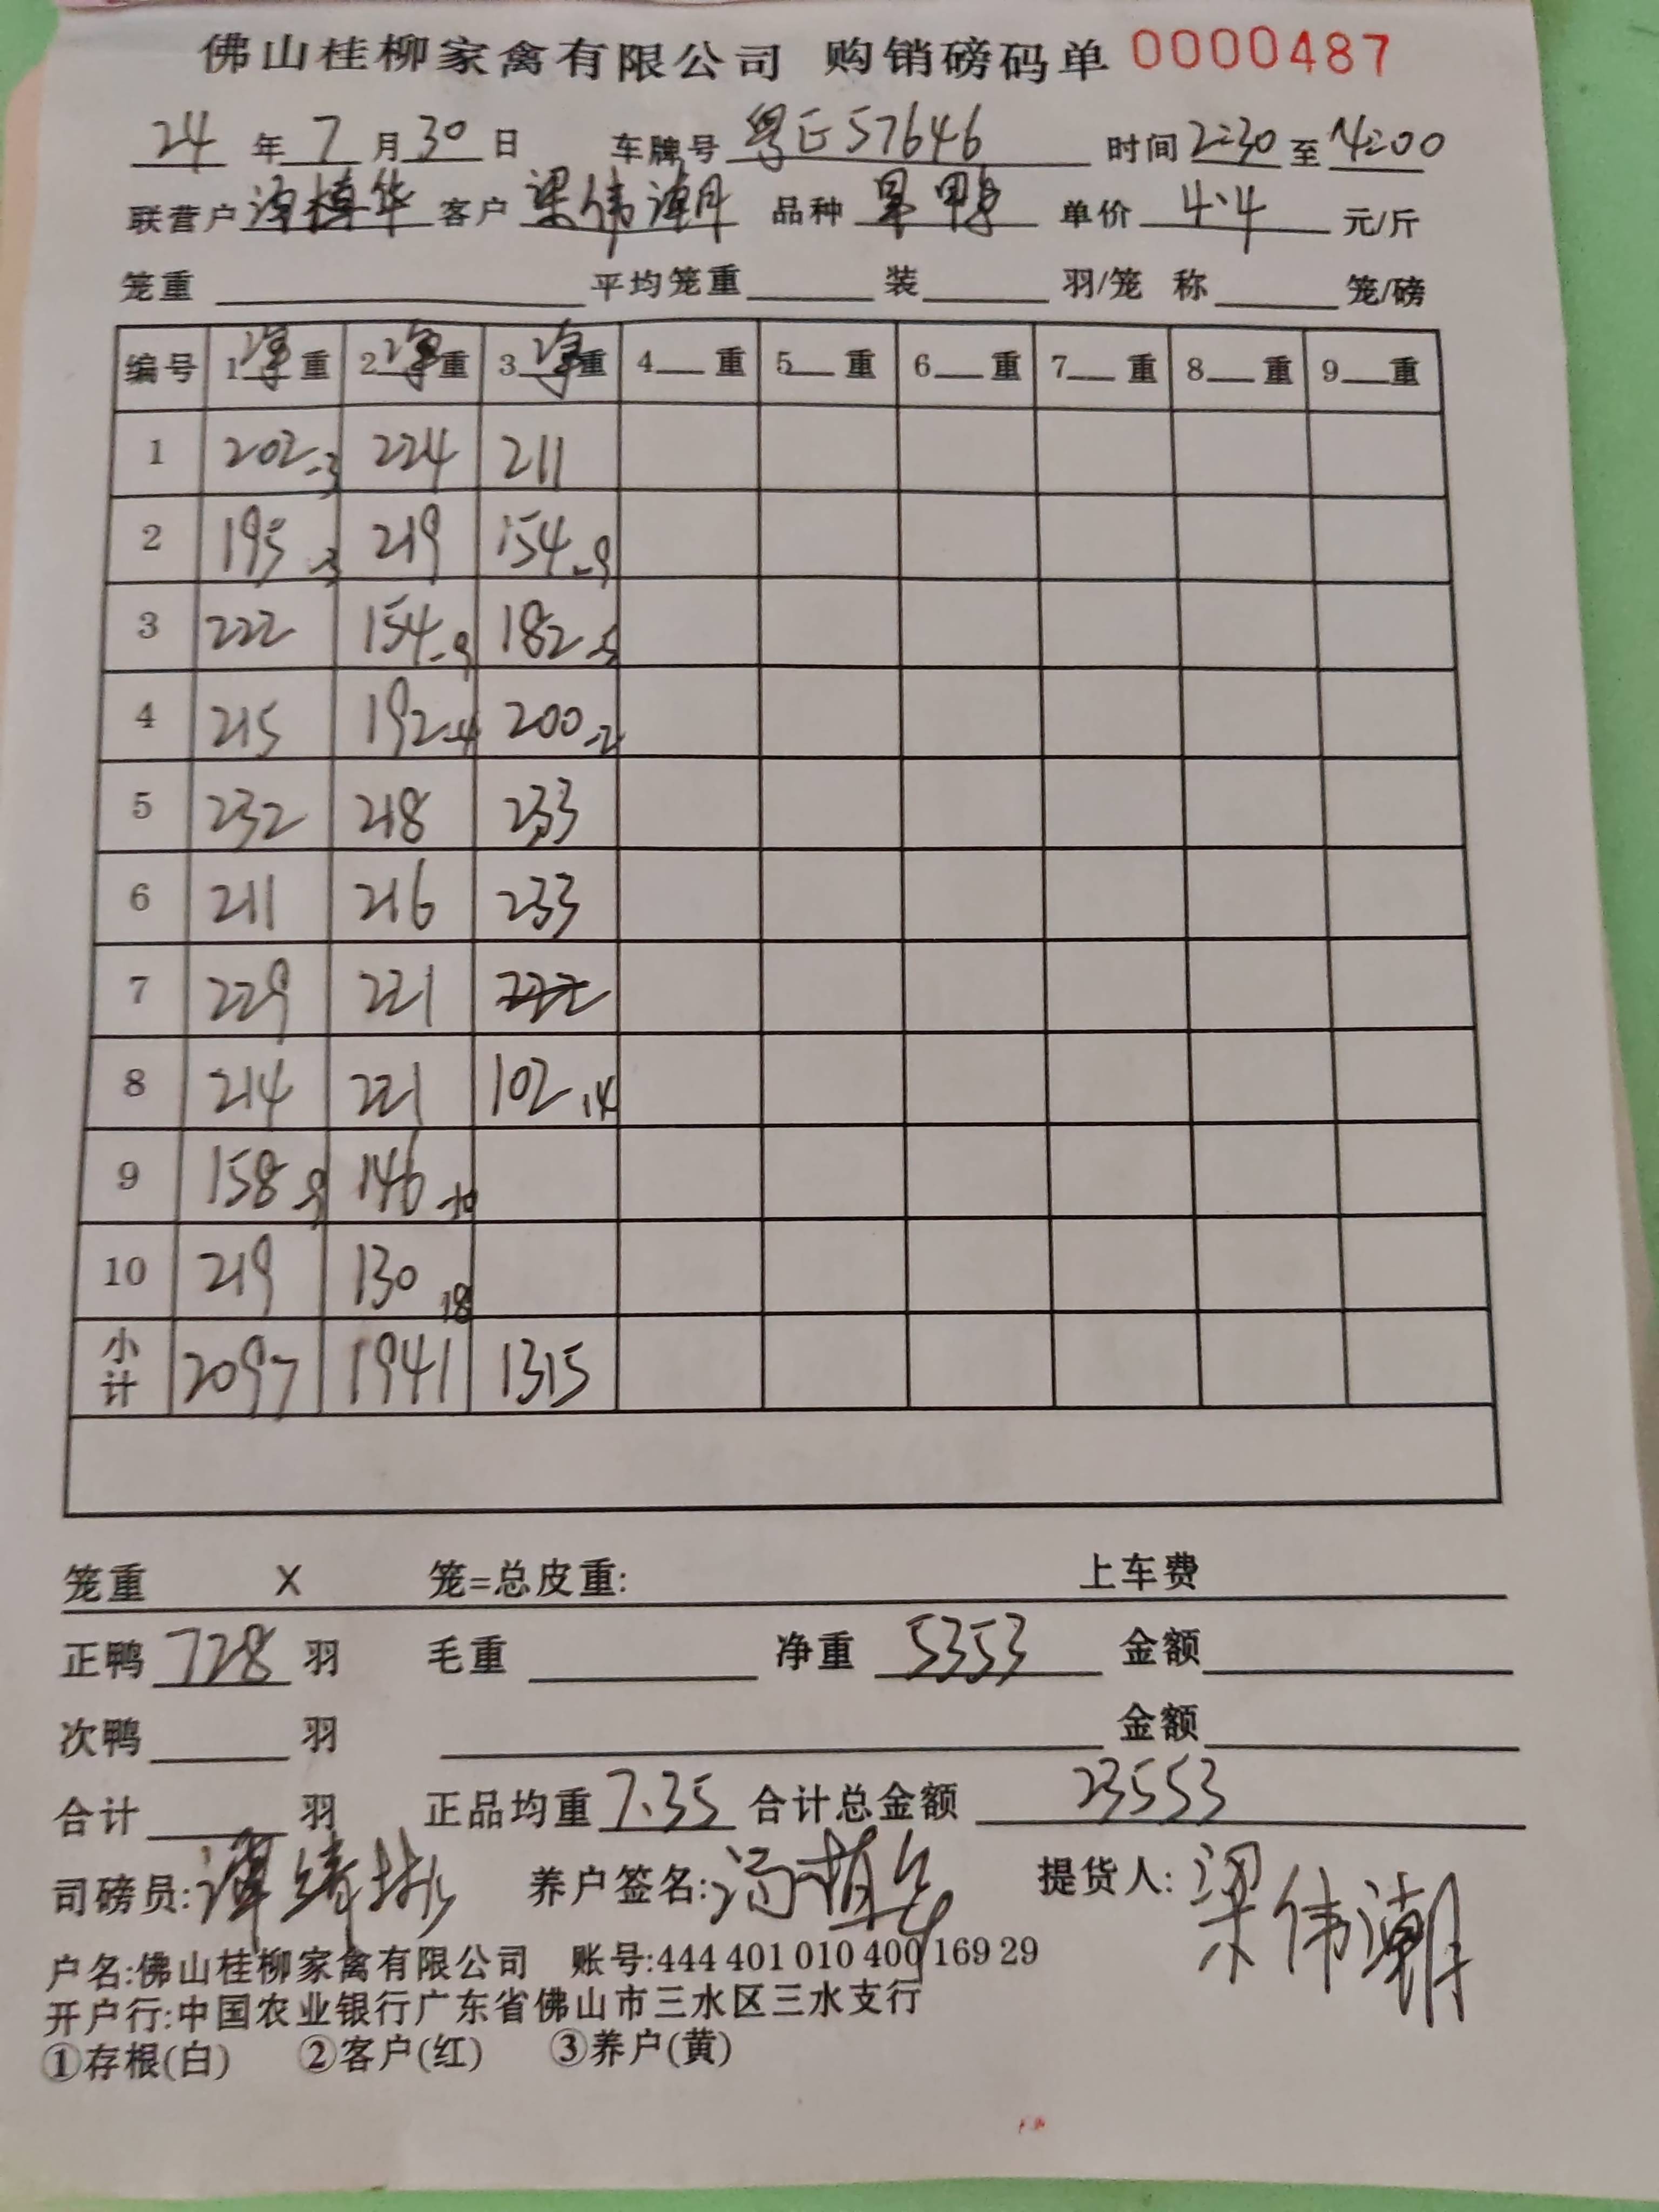 佛山桂柳家禽有限公司 购销磅码单 0000487
24 年 7 月 30 日 车牌号 粤E57646 时间 2:30 至 4:00
联营户 客户 梁伟潮 品种 单价 4.4 元/斤
笼重 平均笼重 装 羽/笼 称 笼/磅
编号 1 净 重 2 净 重 3 净 重 4 重 5 重 6 重 7 重 8 重 9 重
1 202 -3 224 211
2 195 -3 219 154 -9
3 222 154 -9 182 -5
4 215 192 -4 200 -2
5 232 218 233
6 211 216 233
7 229 221
8 214 221 102 14
9 158 -9 146 -10
10 219 130 18
小计 2097 1941 1315
笼重 X 笼=总皮重: 上车费
正鸭 728 羽 毛重 净重 5353 金额
次鸭 羽 金额
合计 羽 正品均重 7.35 合计总金额 23553
司磅员: 养户签名: 提货人: 梁伟潮
户名:佛山桂柳家禽有限公司 账号:444 401 010 400 169 29
开户行:中国农业银行广东省佛山市三水区三水支行
①存根(白) ②客户(红) ③养户(黄)